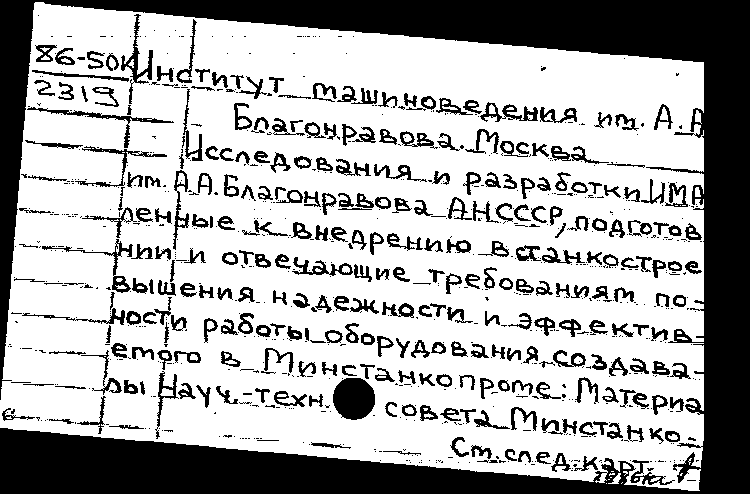 86-50К
2319
Институт машиноведения им. А.А
Благонравова. Москва
Исследования и разработки ИМА
им. А.А. Благонравова АНСССР, подготов
ленные к внедрению в станкострое
нии и отвечающие требованиям по-
вышения надежности и эффектив-
ности работы оборудования, создава-
емого в Минстанкопроме: Материа
лы Науч.-техн. совета Минстанко-
См. след. карт.